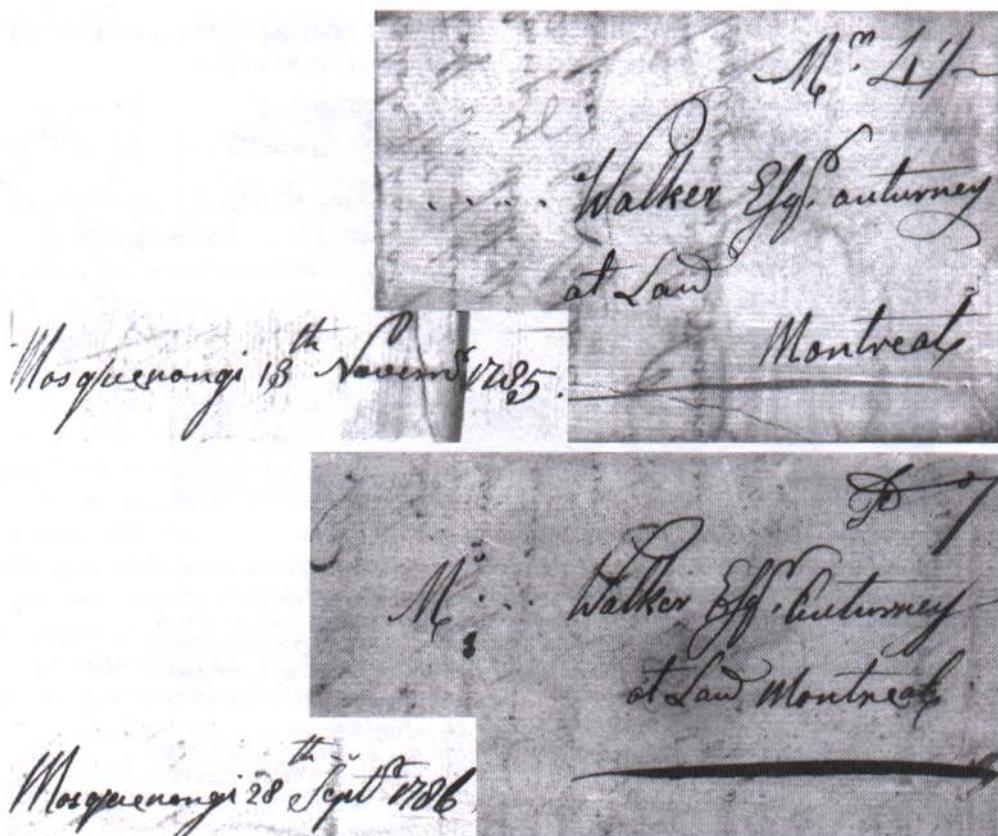 Mr.
. . . . Walker Esqr. auturney
at Law
Montreal
Mosquenongi 13th Novemr 1785.
Mr. . . Walker Esqr. Auturney
at Law Montreal
Mosquenongi 28th Septr 1786